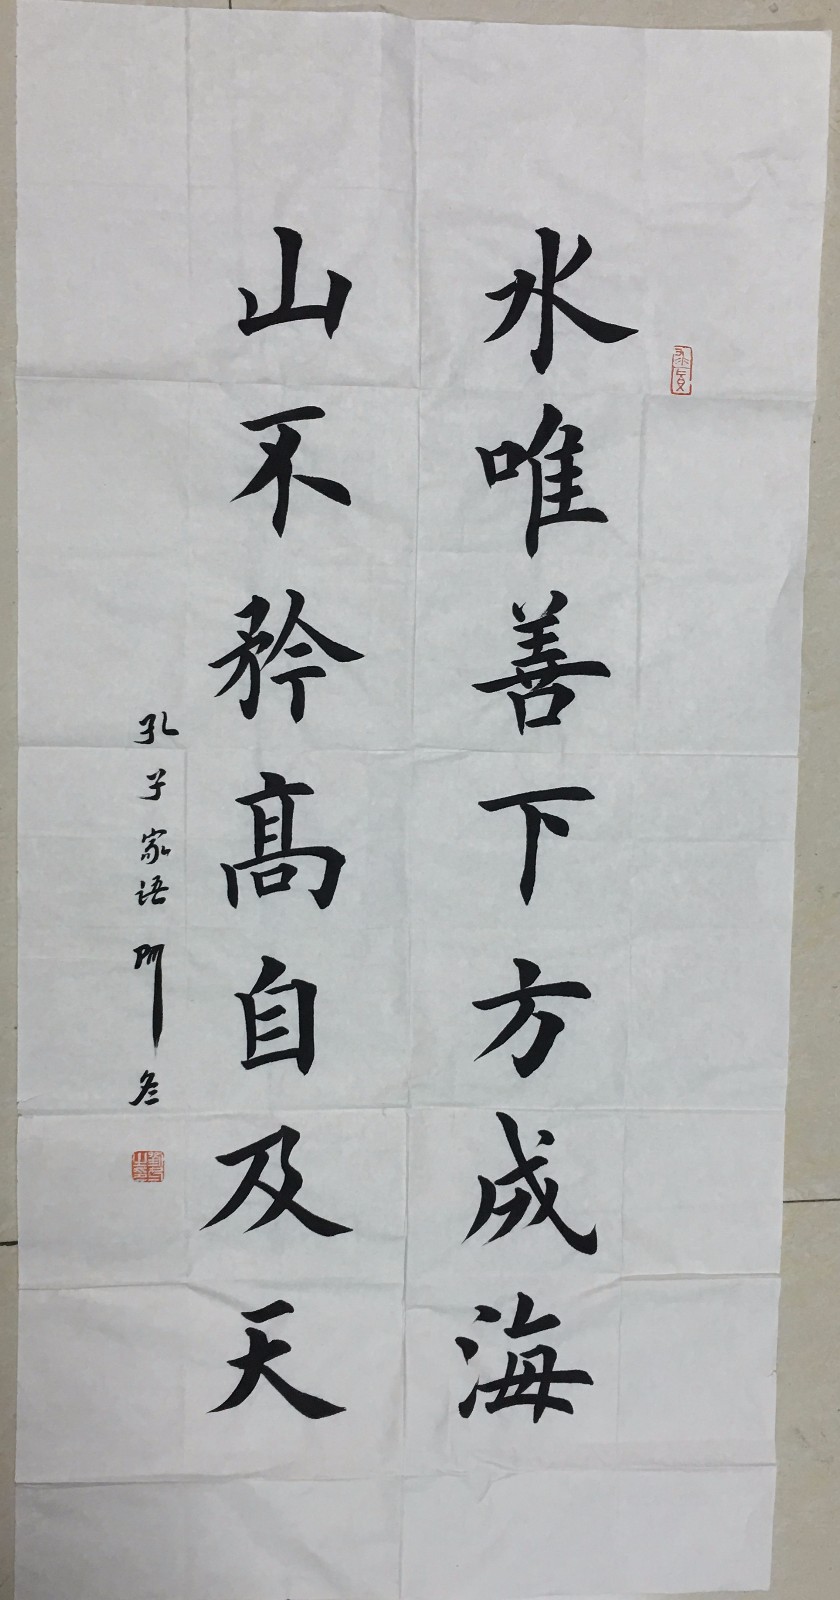 水唯善下方成海
山不矜高自及天
孔子家语 阿冬